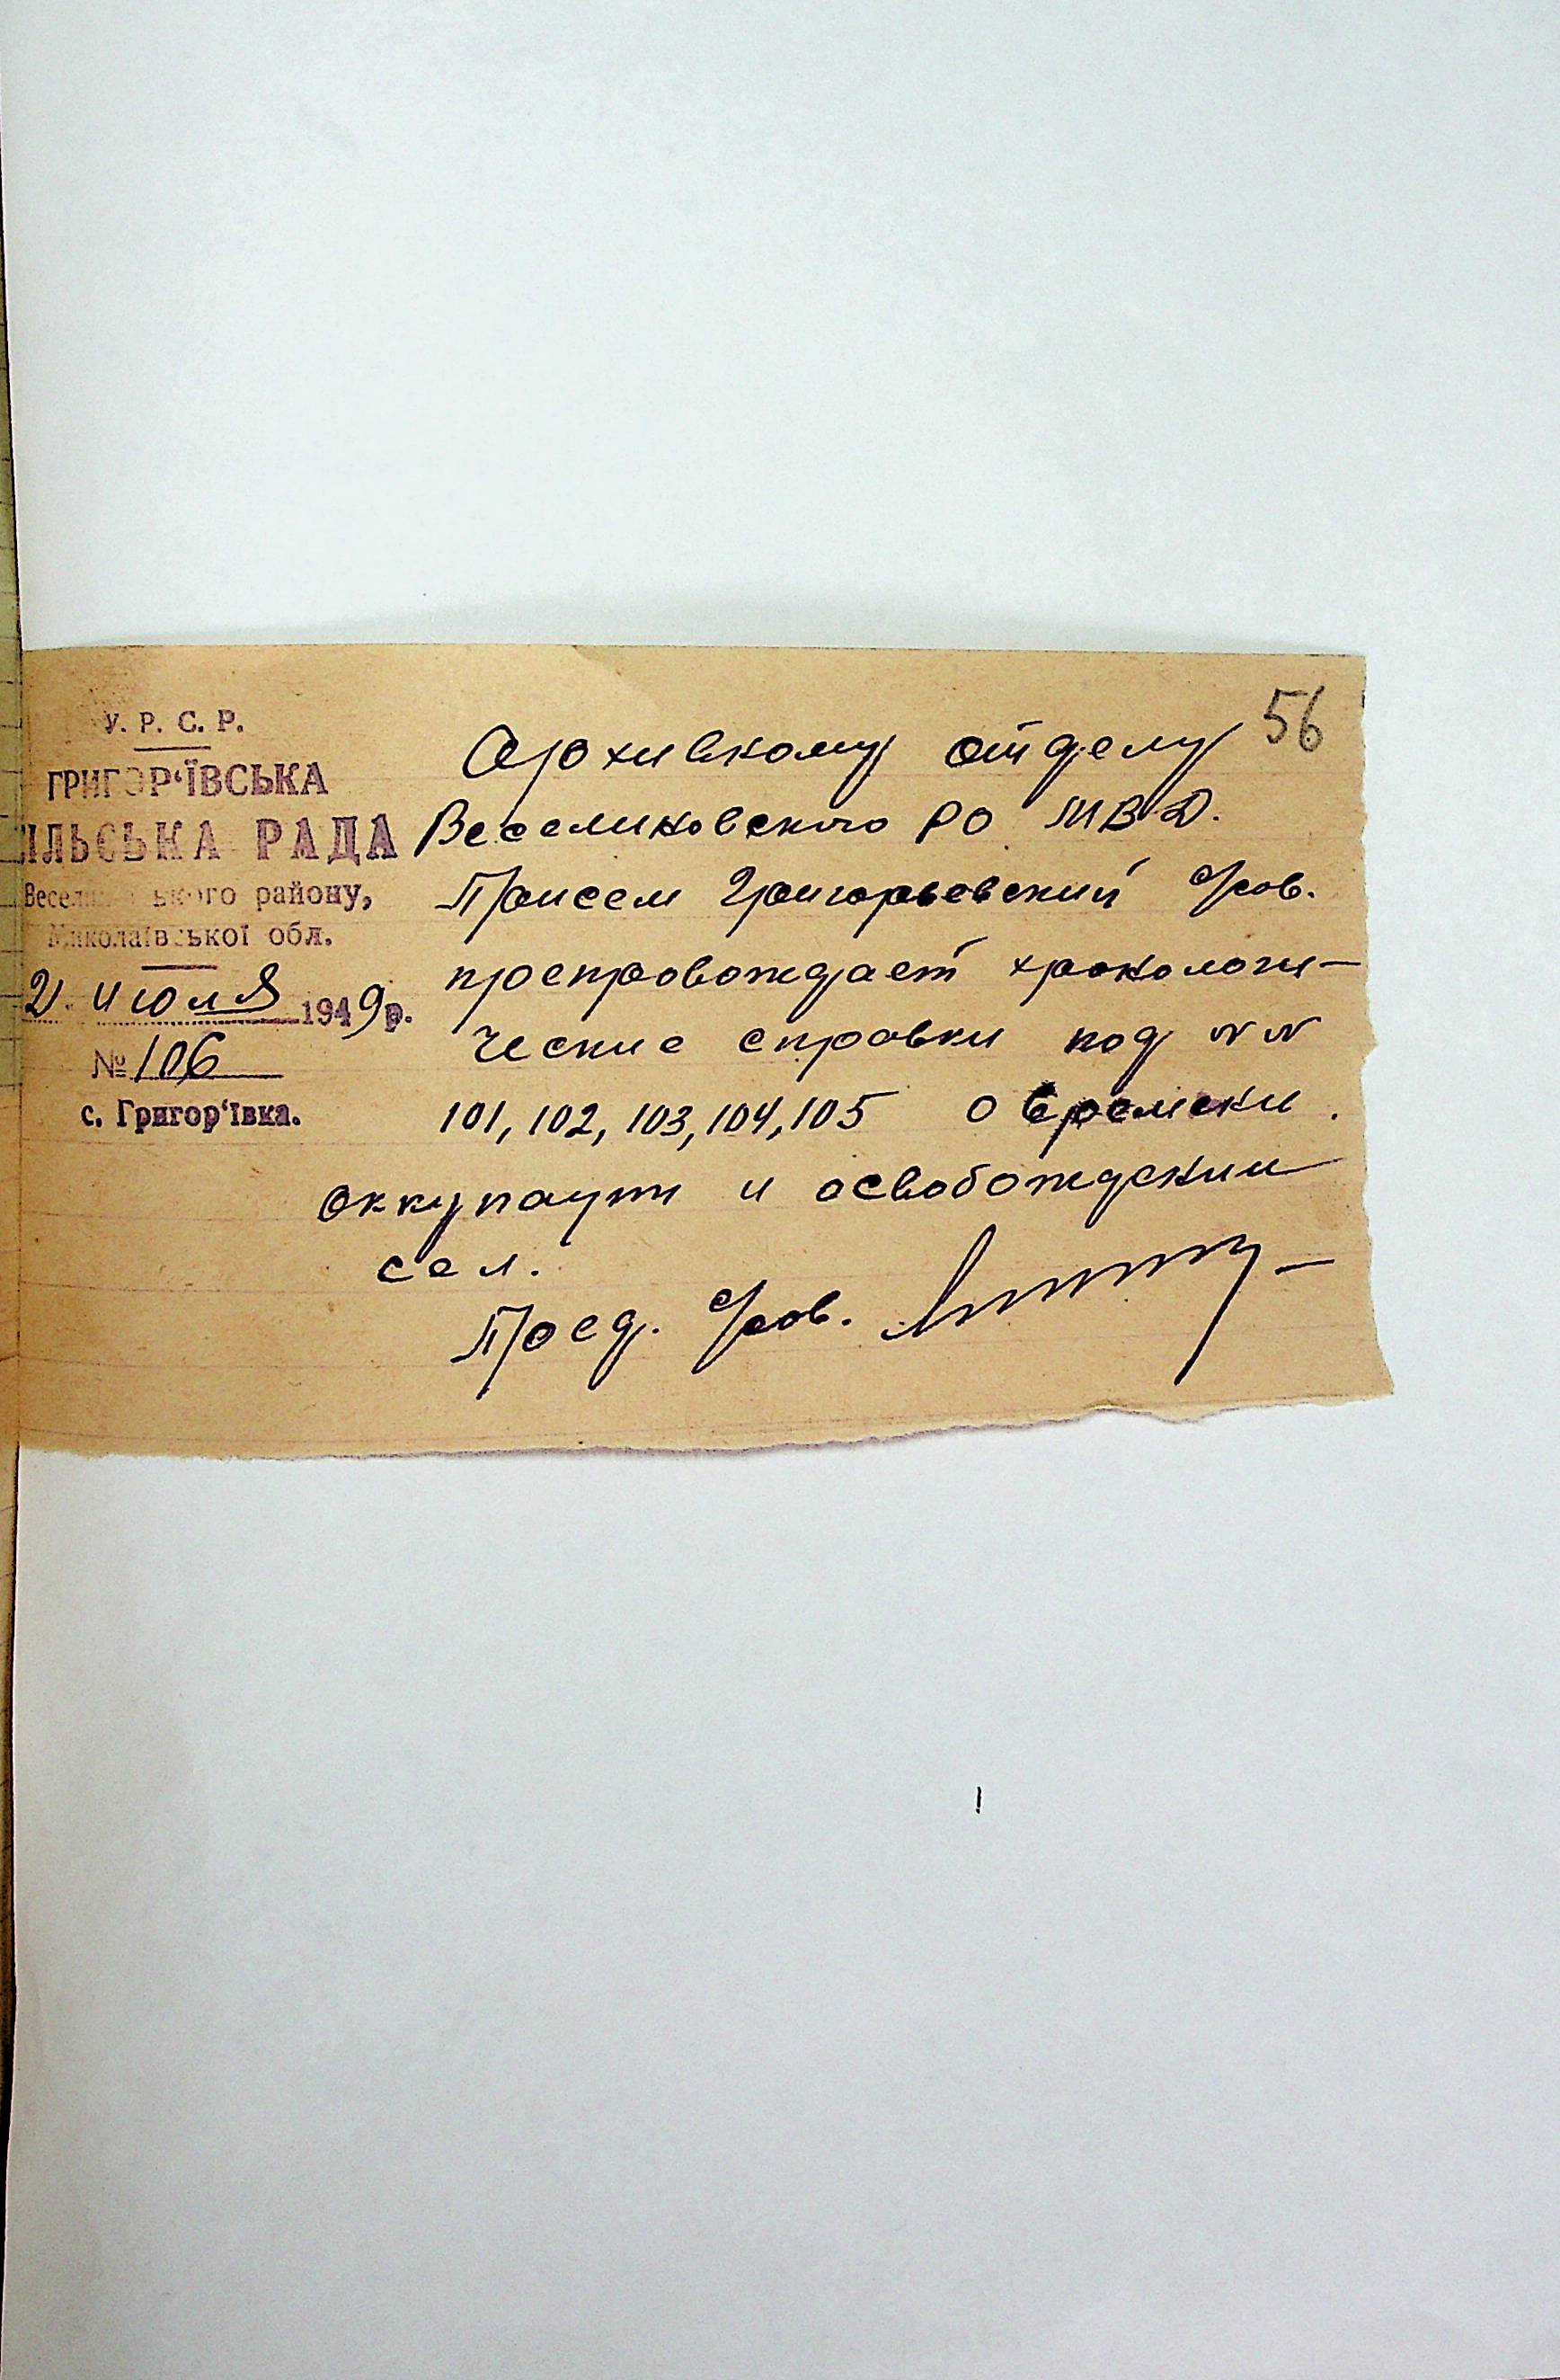 56
У. Р. С. Р.
ГРИГОР'ЇВСЬКА
ІЛЬСЬКА РАДА
Веселинівського району,
Миколаївської обл.
21 июля 1949р.
№ 106
с. Григор'ївка.
Архивному отделу
Веселиновского РО МВД.
При сем Григорьевский с/сов.
препровождает хронологи-
ческие справки под NN
101, 102, 103, 104, 105 о времени
оккупации и освобождении
сел.
Пред. с/сов.